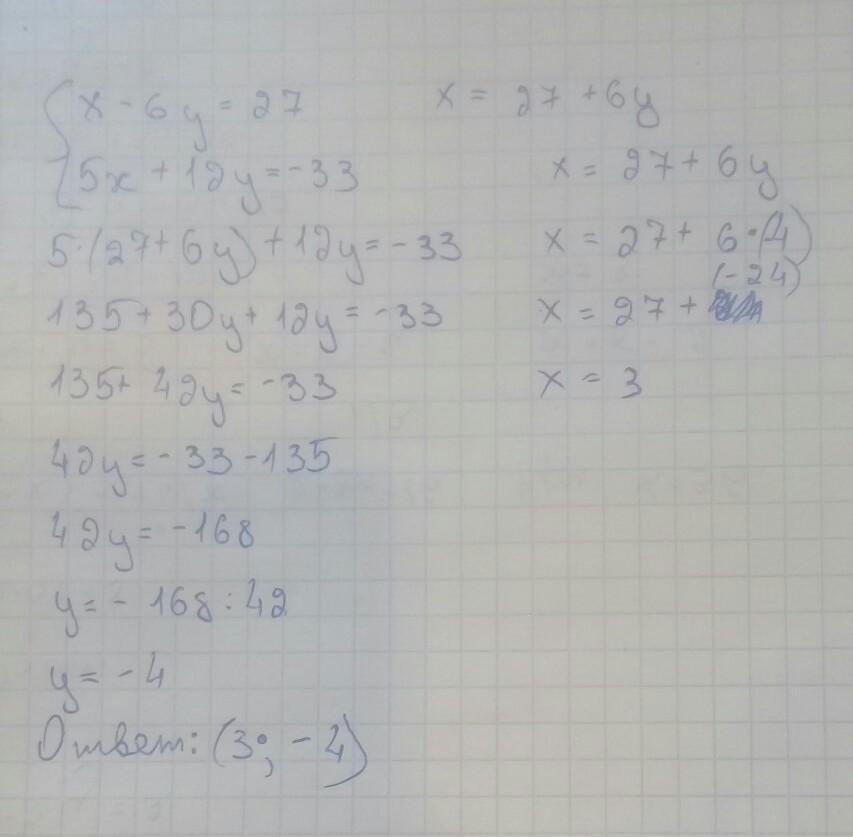 x - 6y = 27
5x + 12y = -33
5·(27 + 6y) + 12y = -33
135 + 30y + 12y = -33
135 + 42y = -33
42y = -33 - 135
42y = -168
y = - 168 : 42
y = - 4
x = 27 + 6y
x = 27 + 6y
x = 27 + 6·(-4)
(-24)
x = 27 +
x = 3
Ответ: (3; -4)